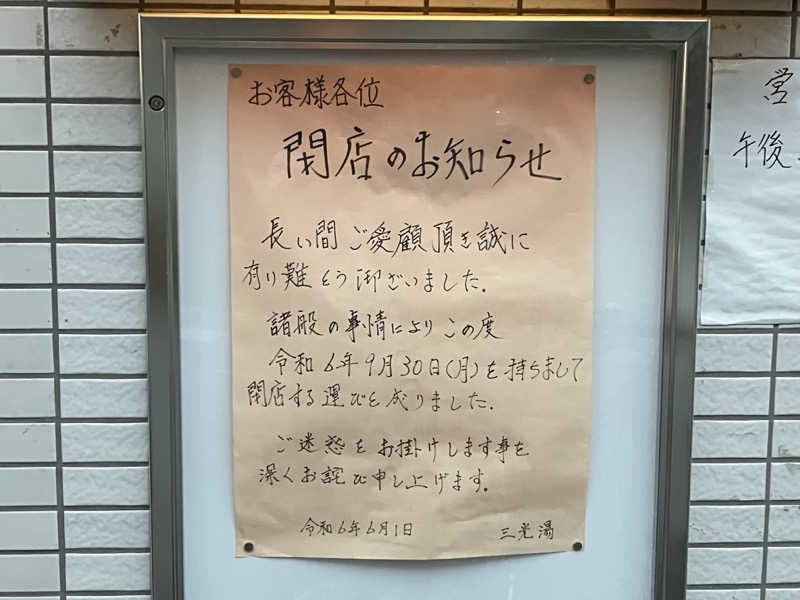 お客様各位
閉店のお知らせ
長い間ご愛顧頂き誠に
有り難とう御ざいました.
諸般の事情によりこの度
令和6年9月30日(月)を持ちまして
閉店する運びと成りました.
ご迷惑をお掛けします事を
深くお詫び申し上げます。
令和6年6月1日
三光湯
営
午後